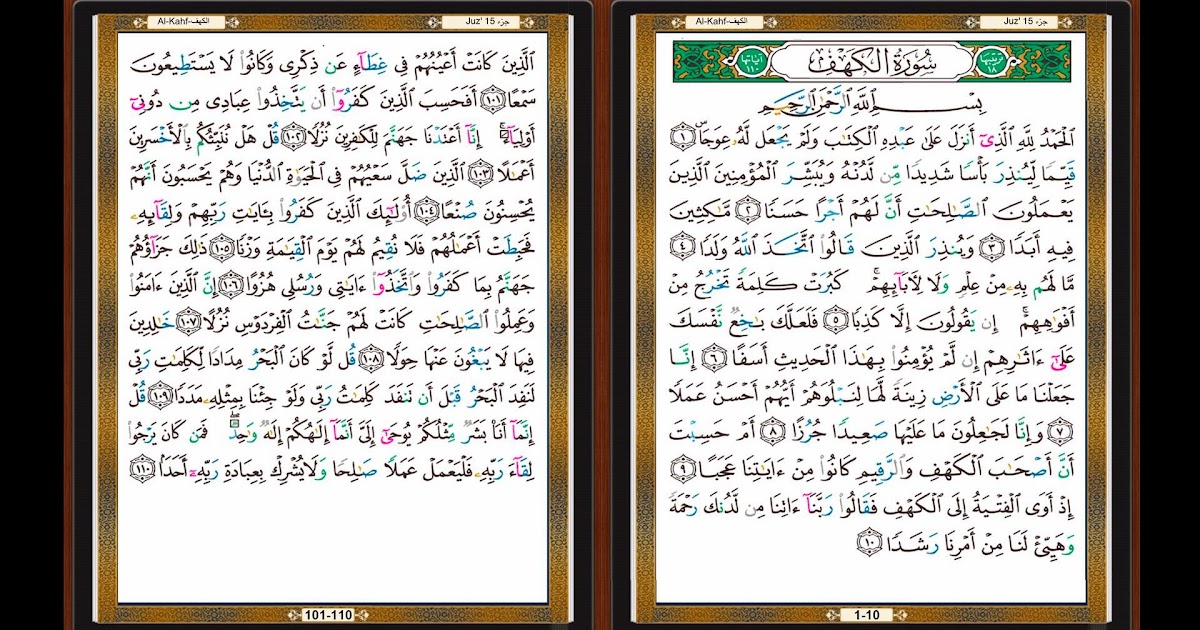 Al-Kahf-الكهف Juz' 15 جزء
ترتيبها ١٨ سُورَةُ الكَهْفِ آياتها ١١٠
بِسْمِ ٱللَّهِ ٱلرَّحْمَٰنِ ٱلرَّحِيمِ
ٱلْحَمْدُ لِلَّهِ ٱلَّذِىٓ أَنزَلَ عَلَىٰ عَبْدِهِ ٱلْكِتَٰبَ وَلَمْ يَجْعَل لَّهُۥ عِوَجَاۜ ١
قَيِّمًا لِّيُنذِرَ بَأْسًا شَدِيدًا مِّن لَّدُنْهُ وَيُبَشِّرَ ٱلْمُؤْمِنِينَ ٱلَّذِينَ
يَعْمَلُونَ ٱلصَّٰلِحَٰتِ أَنَّ لَهُمْ أَجْرًا حَسَنًا ٢ مَّٰكِثِينَ
فِيهِ أَبَدًا ٣ وَيُنذِرَ ٱلَّذِينَ قَالُوا۟ ٱتَّخَذَ ٱللَّهُ وَلَدًا ٤
مَّا لَهُم بِهِۦ مِنْ عِلْمٍ وَلَا لِءَابَآئِهِمْ ۚ كَبُرَتْ كَلِمَةً تَخْرُجُ مِنْ
أَفْوَٰهِهِمْ ۚ إِن يَقُولُونَ إِلَّا كَذِبًا ٥ فَلَعَلَّكَ بَٰخِعٌ نَّفْسَكَ
عَلَىٰٓ ءَاثَٰرِهِمْ إِن لَّمْ يُؤْمِنُوا۟ بِهَٰذَا ٱلْحَدِيثِ أَسَفًا ٦ إِنَّا
جَعَلْنَا مَا عَلَى ٱلْأَرْضِ زِينَةً لَّهَا لِنَبْلُوَهُمْ أَيُّهُمْ أَحْسَنُ عَمَلًا
٧ وَإِنَّا لَجَٰعِلُونَ مَا عَلَيْهَا صَعِيدًا جُرُزًا ٨ أَمْ حَسِبْتَ
أَنَّ أَصْحَٰبَ ٱلْكَهْفِ وَٱلرَّقِيمِ كَانُوا۟ مِنْ ءَايَٰتِنَا عَجَبًا ٩
إِذْ أَوَى ٱلْفِتْيَةُ إِلَى ٱلْكَهْفِ فَقَالُوا۟ رَبَّنَآ ءَاتِنَا مِن لَّدُنكَ رَحْمَةً
وَهَيِّئْ لَنَا مِنْ أَمْرِنَا رَشَدًا ١٠
1-10
Al-Kahf-الكهف Juz' 15 جزء
ٱلَّذِينَ كَانَتْ أَعْيُنُهُمْ فِى غِطَآءٍ عَن ذِكْرِى وَكَانُوا۟ لَا يَسْتَطِيعُونَ
سَمْعًا ١٠١ أَفَحَسِبَ ٱلَّذِينَ كَفَرُوٓا۟ أَن يَتَّخِذُوا۟ عِبَادِى مِن دُونِىٓ
أَوْلِيَآءَ ۚ إِنَّآ أَعْتَدْنَا جَهَنَّمَ لِلْكَٰفِرِينَ نُزُلًا ١٠٢ قُلْ هَلْ نُنَبِّئُكُم بِٱلْأَخْسَرِينَ
أَعْمَٰلًا ١٠٣ ٱلَّذِينَ ضَلَّ سَعْيُهُمْ فِى ٱلْحَيَوٰةِ ٱلدُّنْيَا وَهُمْ يَحْسَبُونَ أَنَّهُمْ
يُحْسِنُونَ صُنْعًا ١٠٤ أُو۟لَٰٓئِكَ ٱلَّذِينَ كَفَرُوا۟ بِـَٔايَٰتِ رَبِّهِمْ وَلِقَآئِهِۦ
فَحَبِطَتْ أَعْمَٰلُهُمْ فَلَا نُقِيمُ لَهُمْ يَوْمَ ٱلْقِيَٰمَةِ وَزْنًا ١٠٥ ذَٰلِكَ جَزَآؤُهُمْ
جَهَنَّمُ بِمَا كَفَرُوا۟ وَٱتَّخَذُوٓا۟ ءَايَٰتِى وَرُسُلِى هُزُوًا ١٠٦ إِنَّ ٱلَّذِينَ ءَامَنُوا۟
وَعَمِلُوا۟ ٱلصَّٰلِحَٰتِ كَانَتْ لَهُمْ جَنَّٰتُ ٱلْفِرْدَوْسِ نُزُلًا ١٠٧ خَٰلِدِينَ
فِيهَا لَا يَبْغُونَ عَنْهَا حِوَلًا ١٠٨ قُل لَّوْ كَانَ ٱلْبَحْرُ مِدَادًا لِّكَلِمَٰتِ رَبِّى
لَنَفِدَ ٱلْبَحْرُ قَبْلَ أَن تَنفَدَ كَلِمَٰتُ رَبِّى وَلَوْ جِئْنَا بِمِثْلِهِۦ مَدَدًا ١٠٩ قُلْ
إِنَّمَآ أَنَا۠ بَشَرٌ مِّثْلُكُمْ يُوحَىٰٓ إِلَىَّ أَنَّمَآ إِلَٰهُكُمْ إِلَٰهٌ وَٰحِدٌ ۖ فَمَن كَانَ يَرْجُوا۟
لِقَآءَ رَبِّهِۦ فَلْيَعْمَلْ عَمَلًا صَٰلِحًا وَلَا يُشْرِكْ بِعِبَادَةِ رَبِّهِۦٓ أَحَدًۢا ١١٠
101-110